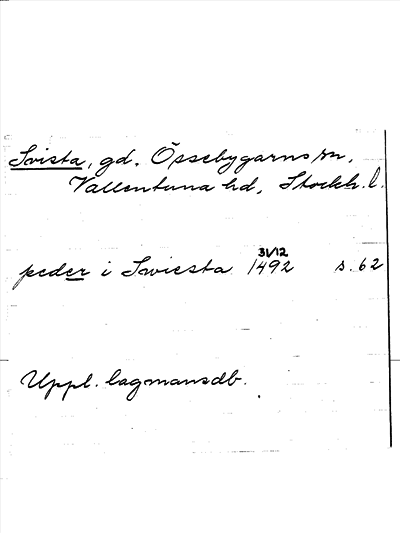 Svista, gd. Össebygarns sn,
Vallentuna hd, Stockh. l.
peder i Swiesta 31/12 1492 s. 62
Uppl. lagmansdb.